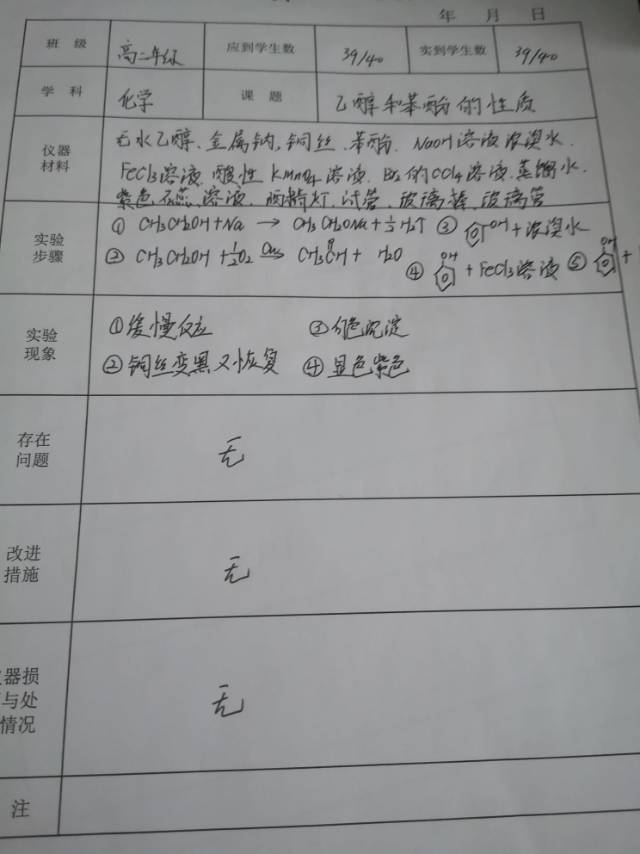 年 月 日
班 级 高二年级 应到学生数 39/40 实到学生数 39/40
学 科 化学 课 题 乙醇和苯酚的性质
仪器
材料
无水乙醇、金属钠、铜丝、苯酚、NaOH溶液、浓溴水、
FeCl₃溶液、酸性KMnO₄溶液、Br₂的CCl₄溶液、蒸馏水、
紫色石蕊溶液、酒精灯、试管、玻璃棒、玻璃管
实验
步骤
① CH₃CH₂OH+Na → CH₃CH₂ONa+½H₂↑ ③ OH+浓溴水
② CH₃CH₂OH+½O₂ CH₃CH+ H₂O ④ OH+FeCl₃溶液 ⑤ OH+
实验
现象
①缓慢反应 ③白色沉淀
②铜丝变黑又恢复 ④显色紫色
存在
问题
无
改进
措施
无
器损
与处
情况
无
注